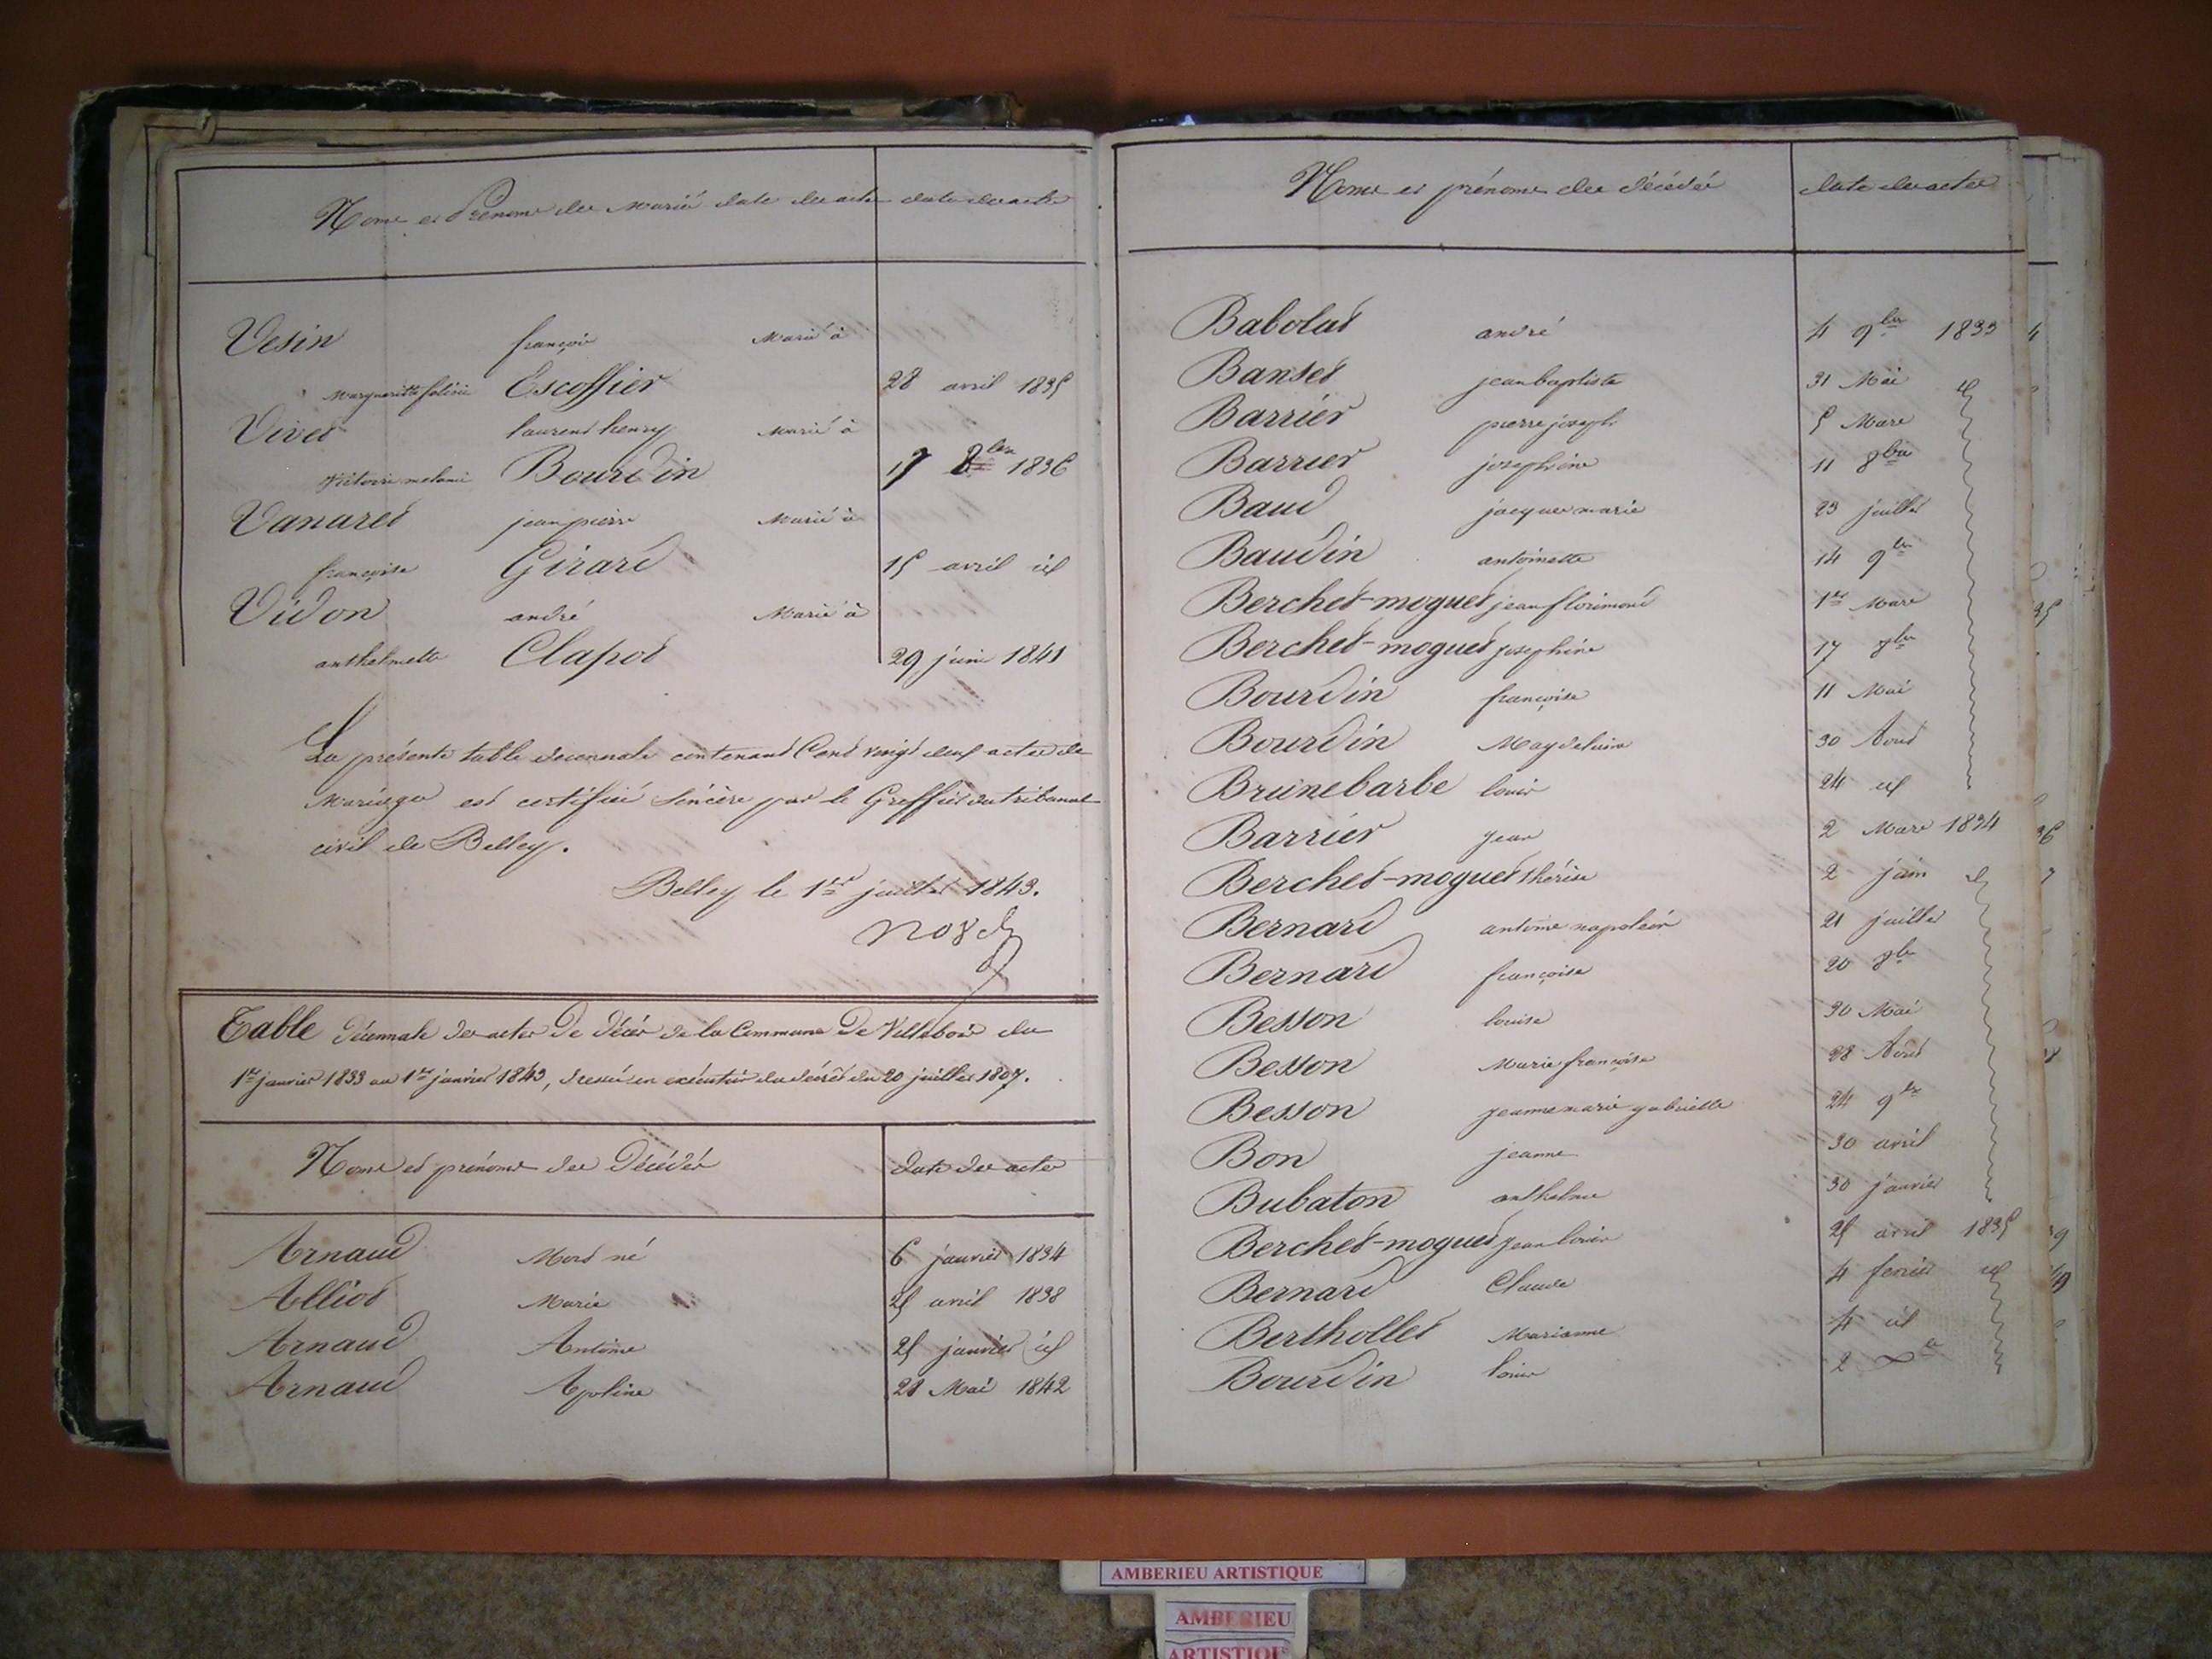 Noms et Prénoms des Mariés date des actes date des actes
Vesin françois Marié à
Margueritte félicie Escoffier 28 avril 1835
Vivet laurent henry Marié à
Victoire melanie Bourdin 17 8bre 1836
Vanaret jean pierre Marié à
françoise Girard 15 avril id
Vidon andré Marié à
anthelmette Clapot 29 juin 1841
La présente table decennale contenant Cent vingt deux actes de
Mariage est certifiée sincère par le Greffier du tribunal
civil de Belley.
Belley le 1er juillet 1843.
Table décennale des actes De Décès de la Commune De Villebois du
1er janvier 1833 au 1er janvier 1843, dressée en exécution du décret du 20 juillet 1807.
Noms et prénoms des Décédés Date des actes
Arnaud Mort né 6 janvier 1834
Alliod Marie 25 avril 1838
Arnaud Antoine 25 janvier id
Arnaud Apoline 28 Mai 1842
Noms et prénoms des décédés date des actes
Babolat andré 4 9bre 1833
Banset jean baptiste 31 Mai id
Barrier pierre joseph 5 Mars
Barrier josephine 11 8bre
Baud jacques marie 23 juillet
Baudin antoinette 14 9bre
Berchet-moguet jean florimond 1er Mars
Berchet-moguet josephine 17 8bre
Bourdin françoise 11 Mai
Bourdin Magdelaine 30 Aout
Brunebarbe louis 24 id
Barrier jean 2 Mars 1834
Berchet-moguet thérèse 2 juin id
Bernard antoine napoléon 21 juillet
Bernard françoise 20 8bre
Besson louise 30 Mai
Besson Marie françoise 28 Aout
Besson jeanne marie gabrielle 24 9bre
Bon jeanne 30 avril
Bubaton anthelme 30 janvier
Berchet-moguet jean louis 25 avril 1835
Bernard Claude 4 fevrier id
Berthollet Marianne 4 id
Bourdin louis 2
AMBERIEU ARTISTIQUE
AMBERIEU
ARTISTIQUE